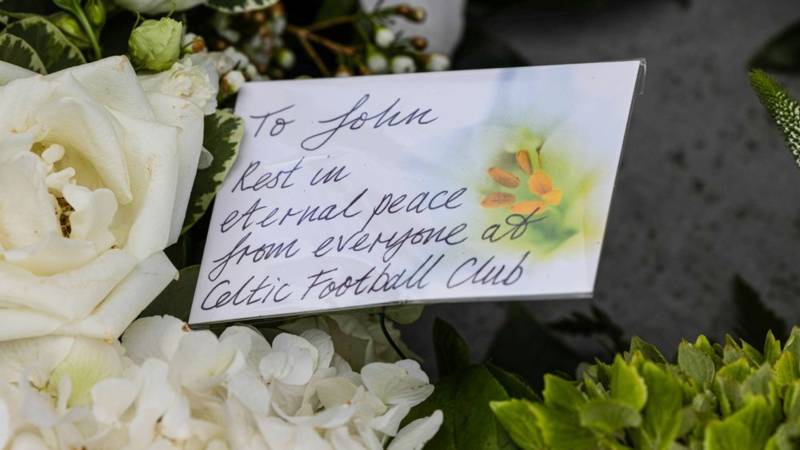 To John
Rest in
eternal peace
from everyone at
Celtic Football Club